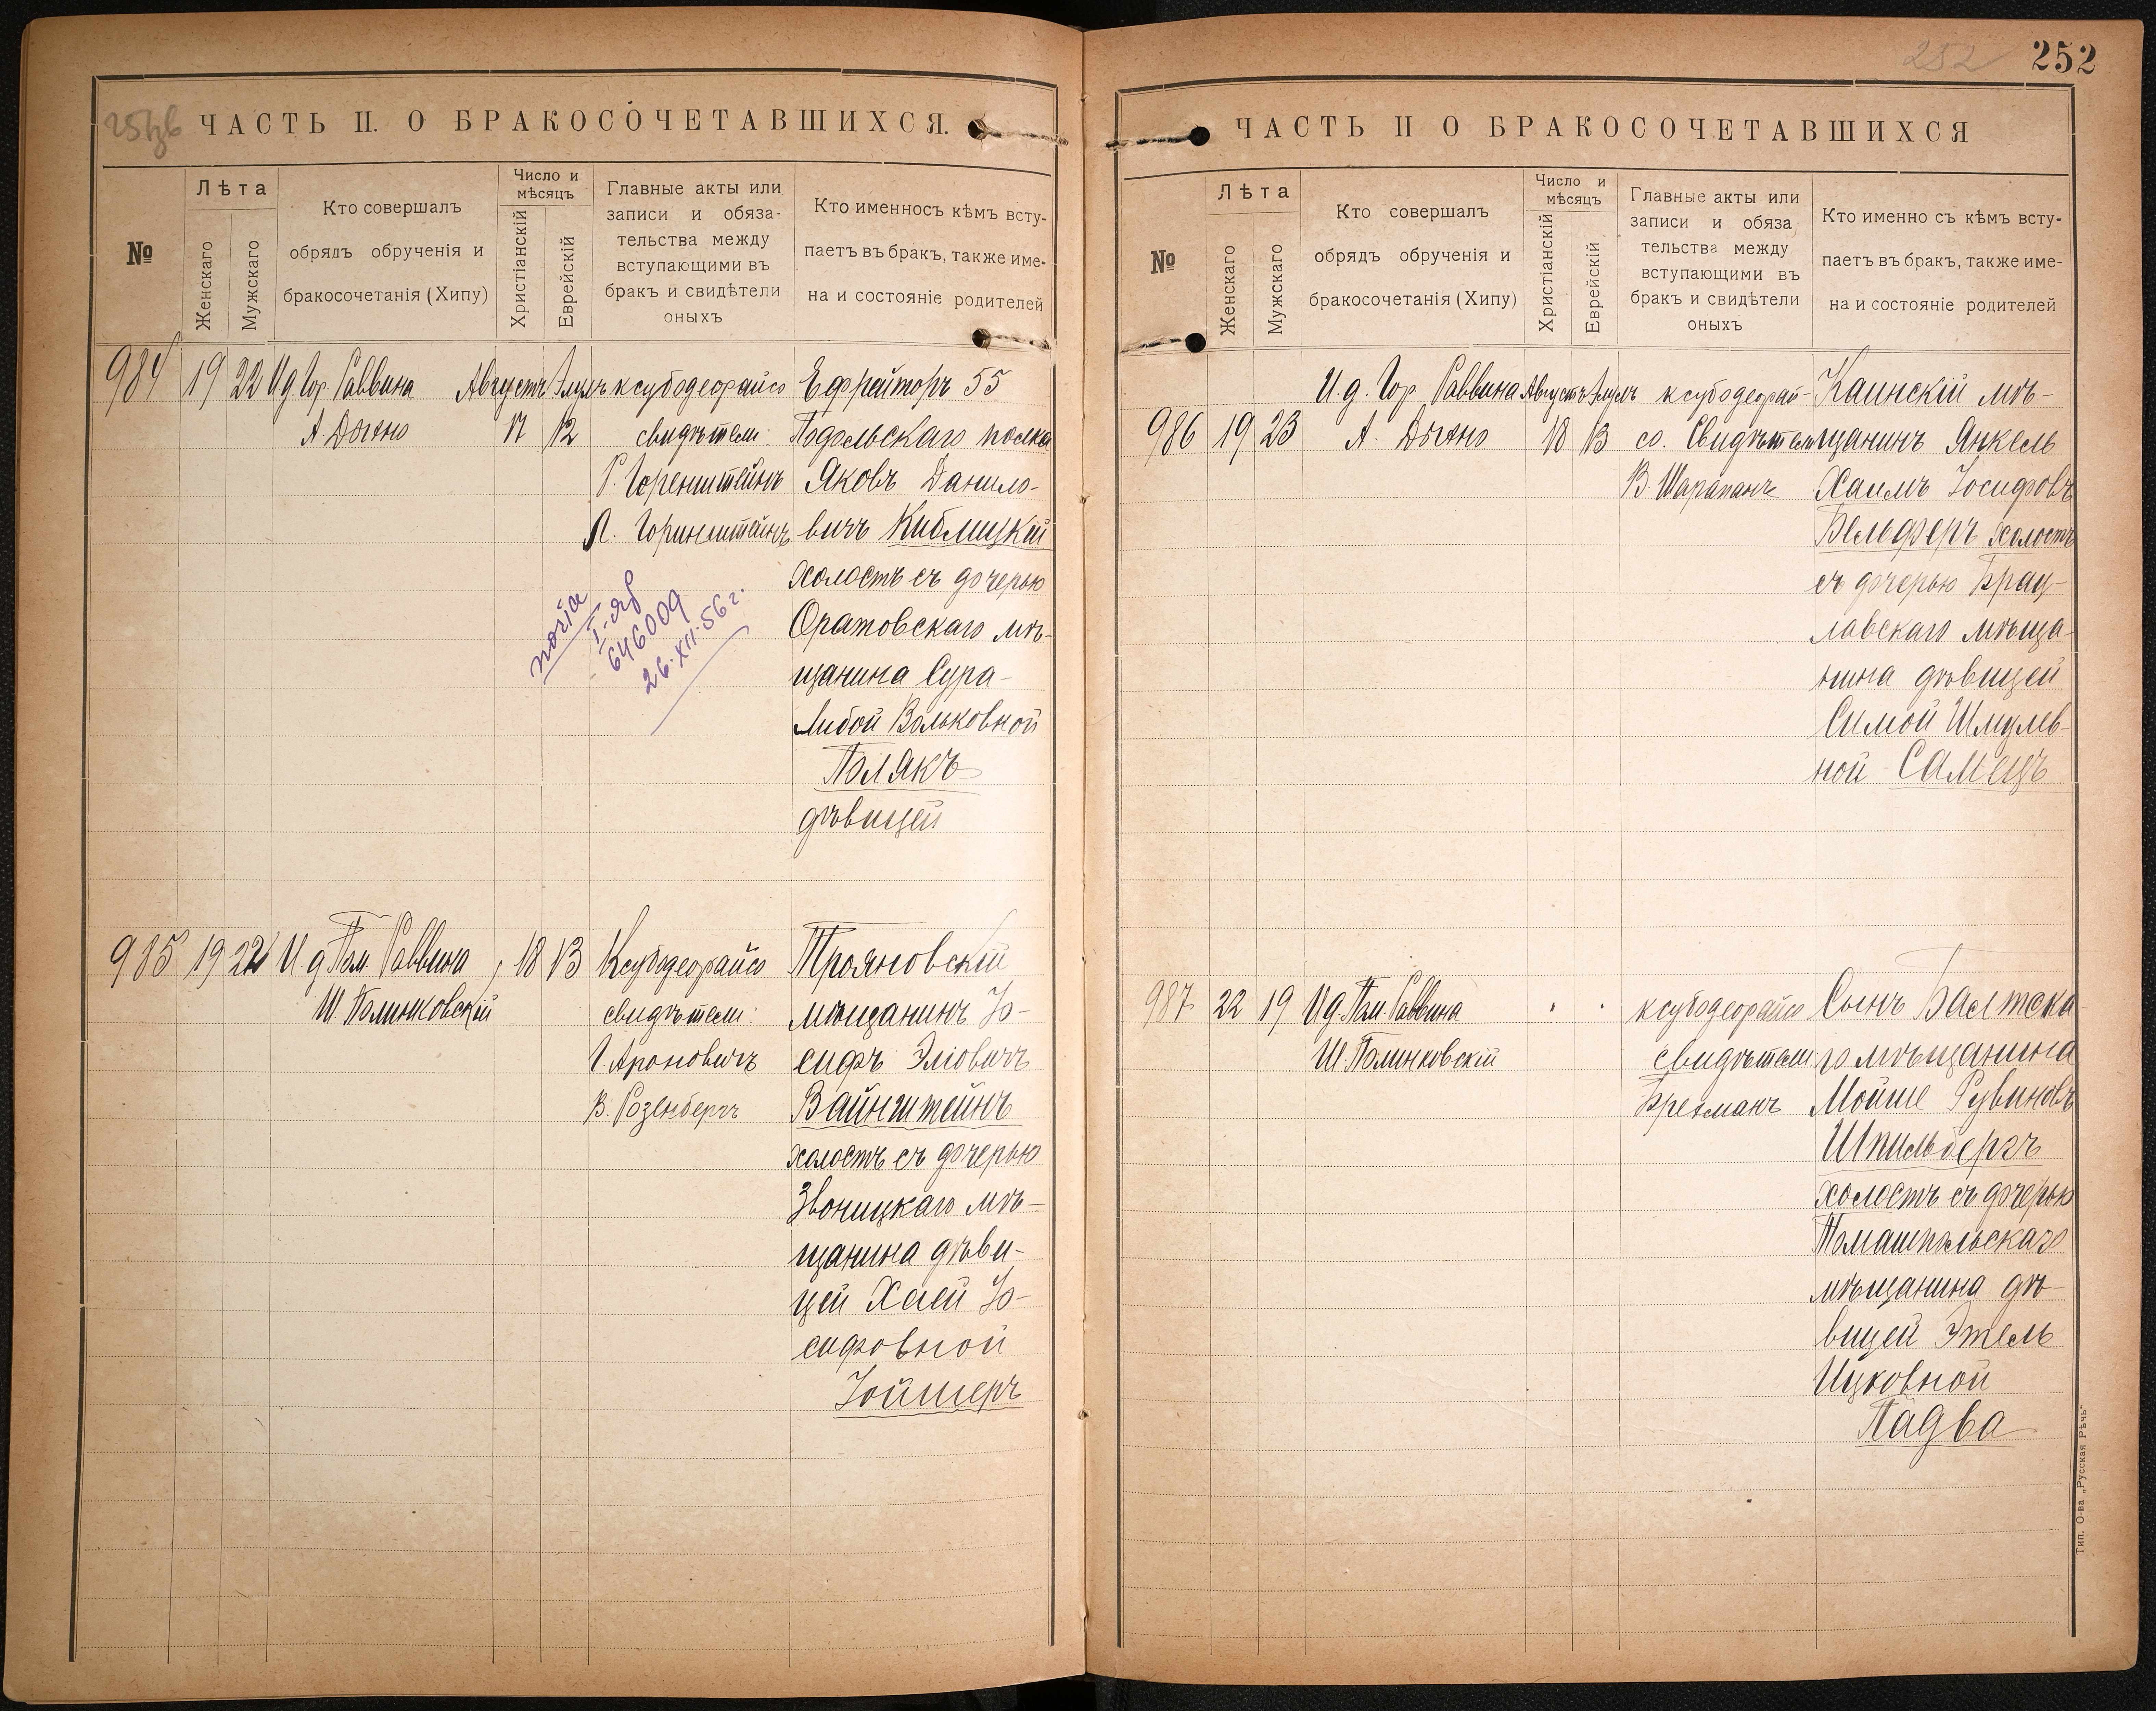 252
252
ЧАСТЬ II. О БРАКОСОЧЕТАВШИХСЯ.
№
Лѣта
Женскаго
Мужскаго
Кто совершалъ
обрядъ обрученія и
бракосочетанія (Хипу)
Число и
мѣсяцъ
Христіанскій
Еврейскій
Главные акты или
записи и обяза-
тельства между
вступающими въ
бракъ и свидѣтели
оныхъ
Кто именносъ кѣмъ всту-
паетъ въ бракъ, также име-
на и состояніе родителей
984 19 22 И д Гор. Раввина
А. Дыхно
Августъ Элулъ
17 12
ксубодеорайсо
свидѣтели:
Г. Горенштейнъ
Л. Горинштейнъ
Ефрейторъ 55
Подольскаго полка
Яковъ Данило-
вичъ Киблицкій
холостъ съ дочерью
Оратовскаго мѣ-
щанина Сура-
Либой Вольковной
Полякъ
дѣвицей
646009
26.XII.56 г.
985 19 22 И д Пом. Раввина
Ш. Полинковскій
18 13
Ксубодеорайсо
свидѣтели:
Г. Ароновичъ
В. Розенбергъ
Трояновскій
мѣщанинъ Іо-
сифъ Эліовичъ
Вайнштейнъ
холостъ съ дочерью
Звоницкаго мѣ-
щанина дѣви-
цей Хаей Іо-
сифовной
Іойшеръ
ЧАСТЬ II О БРАКОСОЧЕТАВШИХСЯ
№
Лѣта
Женскаго
Мужскаго
Кто совершалъ
обрядъ обрученія и
бракосочетанія (Хипу)
Число и
мѣсяцъ
Христіанскій
Еврейскій
Главные акты или
записи и обяза
тельства между
вступающими въ
бракъ и свидѣтели
оныхъ
Кто именно съ кѣмъ всту-
паетъ въ бракъ, также име-
на и состояніе родителей
986 19 23
И. д. Гор. Раввина
А. Дыхно
Августъ Элулъ
18 13
ксубодеорай-
со. Свидѣтели
В. Шарапанъ
Каинскій мѣ-
щанинъ Янкель
Хаимъ Іосифовъ
Бельферъ холостъ
съ дочерью Брац-
лавскаго мѣща-
нина дѣвицей
Симой Шмулев-
ной Самецъ
987 22 19 И д. Пом. Раввина
Ш. Полинковскій
ксубодеорайсо
свидѣтели:
Брехманъ
Сынъ Балтска-
го мѣщанина
Мойше Рувиновъ
Шпильбергъ
холостъ съ дочерью
Томашпольскаго
мѣщанина дѣ-
вицей Этель
Ицковной
Падва
Тип. О-ва „Русская Рѣчь“